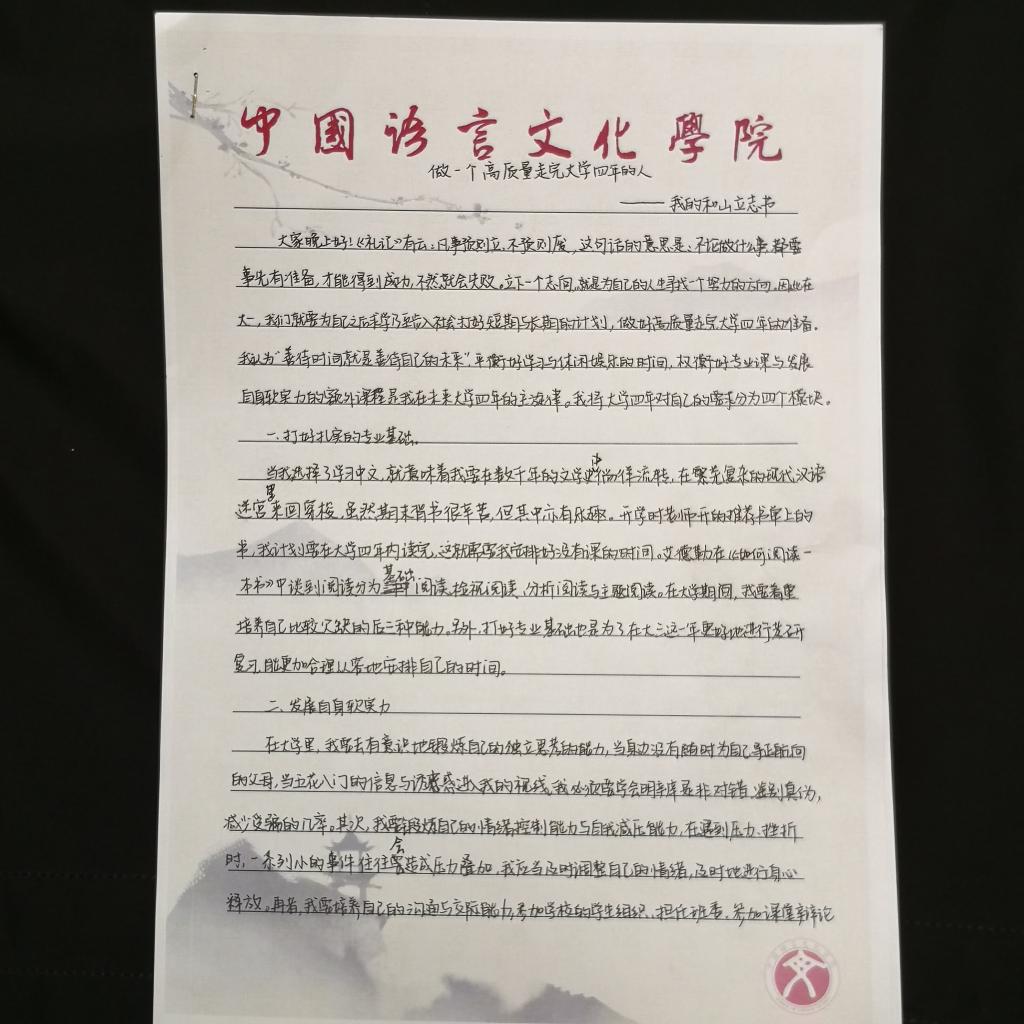 中國语言文化學院
做一个高质量走完大学四年的人
——我的和山立志书
大家晚上好！《礼记》有云：凡事预则立，不预则废，这句话的意思是：不论做什么事，都要
事先有准备，才能得到成功，不然就会失败。立下一个志向，就是为自己的人生寻找一个努力的方向。因此在
大一，我们就要为自己之后求学乃至步入社会打好短期与长期的计划，做好高质量走完大学四年的准备。
我认为“善待时间就是善待自己的未来”，平衡好学习与休闲娱乐的时间，权衡好专业课与发展
自身软实力的额外课程是我在未来大学四年的主旋律。我将大学四年对自己的要求分为四个模块。
一、打好扎实的专业基础。
当我选择了学习中文，就意味着我要在数千年的文学中徜徉流转，在繁芜复杂的现代汉语
迷宫里来回穿梭，虽然期末背书很辛苦，但其中亦有乐趣。开学时老师开的推荐书单上的
书，我计划要在大学四年内读完，这就需要我安排好没有课的时间。艾德勒在《如何阅读一
本书》中谈到阅读分为基础阅读、检视阅读、分析阅读与主题阅读。在大学期间，我要着重
培养自己比较欠缺的后三种能力。另外，打好专业基础也是为了在大三这一年更好地进行考研
复习，能更加合理从容地安排自己的时间。
二、发展自身软实力
在大学里，我要去有意识地锻炼自己的独立思考的能力，当身边没有随时为自己导正航向
的父母，当五花八门的信息与诱惑进入我的视线，我必须要学会明辨是非对错，鉴别真伪，
减少受骗的几率。其次，我要锻炼自己的情绪控制能力与自我减压能力，在遇到压力、挫折
时，一系列小的事件往往会造成压力叠加，我应当及时调整自己的情绪，及时地进行身心
释放。再者，我要培养自己的沟通与交际能力，参加学校的学生组织、担任班委、参加课堂辩论